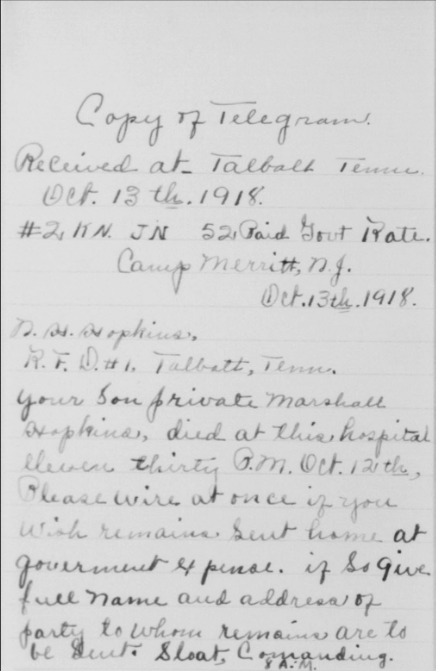 Copy of Telegram.
Received at- Talbott Tenn.
Oct. 13th. 1918.
#2 KN. JN 52 Paid Govt Rate.
Camp Merritt, N.J.
Oct. 13th. 1918.
D. H. Hopkins,
R. F. D. #1. Talbott, Tenn.
your Son private Marshall
Hopkins, died at this hospital
Eleven thirty P.M. Oct. 12th,
Please wire at once if you
Wish remains Sent home at
goverment expense. if So Give
full name and address of
party to Whom remains are to
be Sent. Sloat, Comanding.
8 A.M.